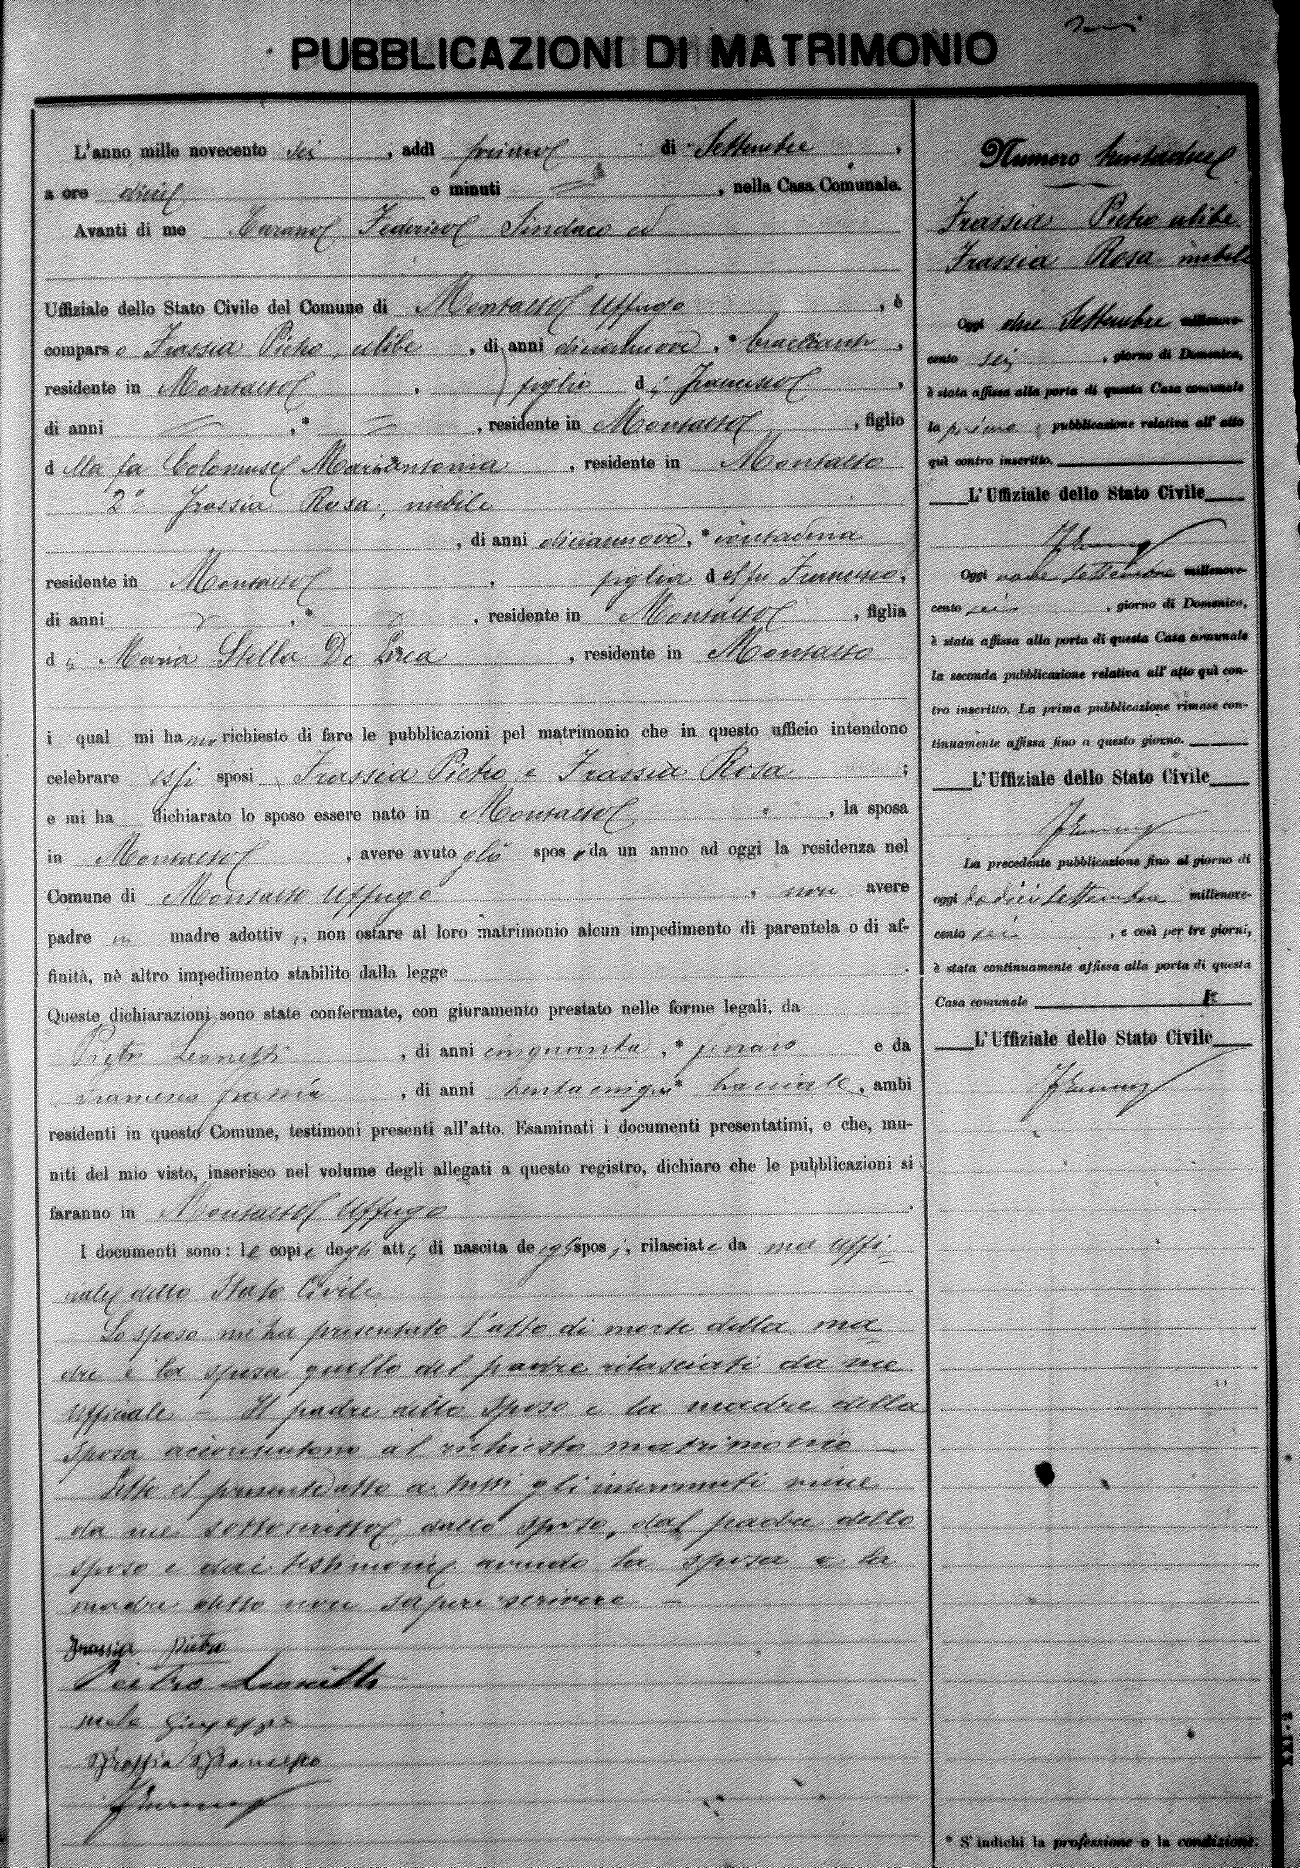 PUBBLICAZIONI DI MATRIMONIO
L'anno mille novecento sei, addì primo di Settembre,
a ore dieci e minuti =, nella Casa Comunale.
Avanti di me Federico Sindaco ed
Uffiziale dello Stato Civile del Comune di Montalto Uffugo, è
comparso Frassia Pietro, celibe, di anni diciannove, * bracciante,
residente in Montalto, figlio di Francesco,
di anni =, * =, residente in Montalto, figlio
della fu Mariantonia, residente in Montalto
2º Frassia Rosa, nubile
, di anni diciannove, * contadina
residente in Montalto, figlia del fu Francesco,
di anni, *, residente in Montalto, figlia
di Maria Stella De Luca, residente in Montalto
i qual mi hanno richiesto di fare le pubblicazioni pel matrimonio che in questo ufficio intendono
celebrare essi sposi Frassia Pietro e Frassia Rosa;
e mi ha dichiarato lo sposo essere nato in Montalto, la sposa
in Montalto, avere avuto gli spos da un anno ad oggi la residenza nel
Comune di Montalto Uffugo, non avere
padre madre adottiv, non ostare al loro matrimonio alcun impedimento di parentela o di af-
finità, nè altro impedimento stabilito dalla legge.
Queste dichiarazioni sono state confermate, con giuramento prestato nelle forme legali, da
Pietro Leonetti, di anni cinquanta, * e da
Francesco Frassia, di anni trentacinque * , ambi
residenti in questo Comune, testimoni presenti all'atto. Esaminati i documenti presentatimi, e che, mu-
niti del mio visto, inserisco nel volume degli allegati a questo registro, dichiaro che le pubblicazioni si
faranno in Montalto Uffugo.
I documenti sono: le copie degli atti di nascita degli sposi, rilasciate da me Uffi-
ciale dello Stato Civile
Lo sposo mi ha presentato l'atto di morte della ma-
dre e la sposa quello del padre rilasciati da me
Ufficiale - Il padre dello sposo e la madre della
sposa acconsentono al richiesto matrimonio -
Letto il presente atto a tutti gli intervenuti viene
da me sottoscritto, dallo sposo, dal padre dello
sposo e dai testimoni avendo la sposa e la
madre detto non sapere scrivere -
Frassia Pietro
Pietro Leonetti
Giuseppe
Frassia Francesco
Numero trentadue
Frassia Pietro celibe
Frassia Rosa nubile
Oggi due Settembre millenove-
cento sei, giorno di Domenica,
è stata affissa alla porta di questa Casa comunale
la prima pubblicazione relativa all'atto
quì contro inscritto.
L'Uffiziale dello Stato Civile
Oggi nove Settembre millenove-
cento sei, giorno di Domenica,
è stata affissa alla porta di questa Casa comunale
la seconda pubblicazione relativa all'atto quì con-
tro inscritto. La prima pubblicazione rimase con-
tinuamente affissa fino a questo giorno.
L'Uffiziale dello Stato Civile
La precedente pubblicazione fino al giorno di
oggi dodici Settembre millenove-
cento sei, e così per tre giorni,
è stata continuamente affissa alla porta di questa
Casa comunale
L'Uffiziale dello Stato Civile
* S'indichi la professione o la condizione.